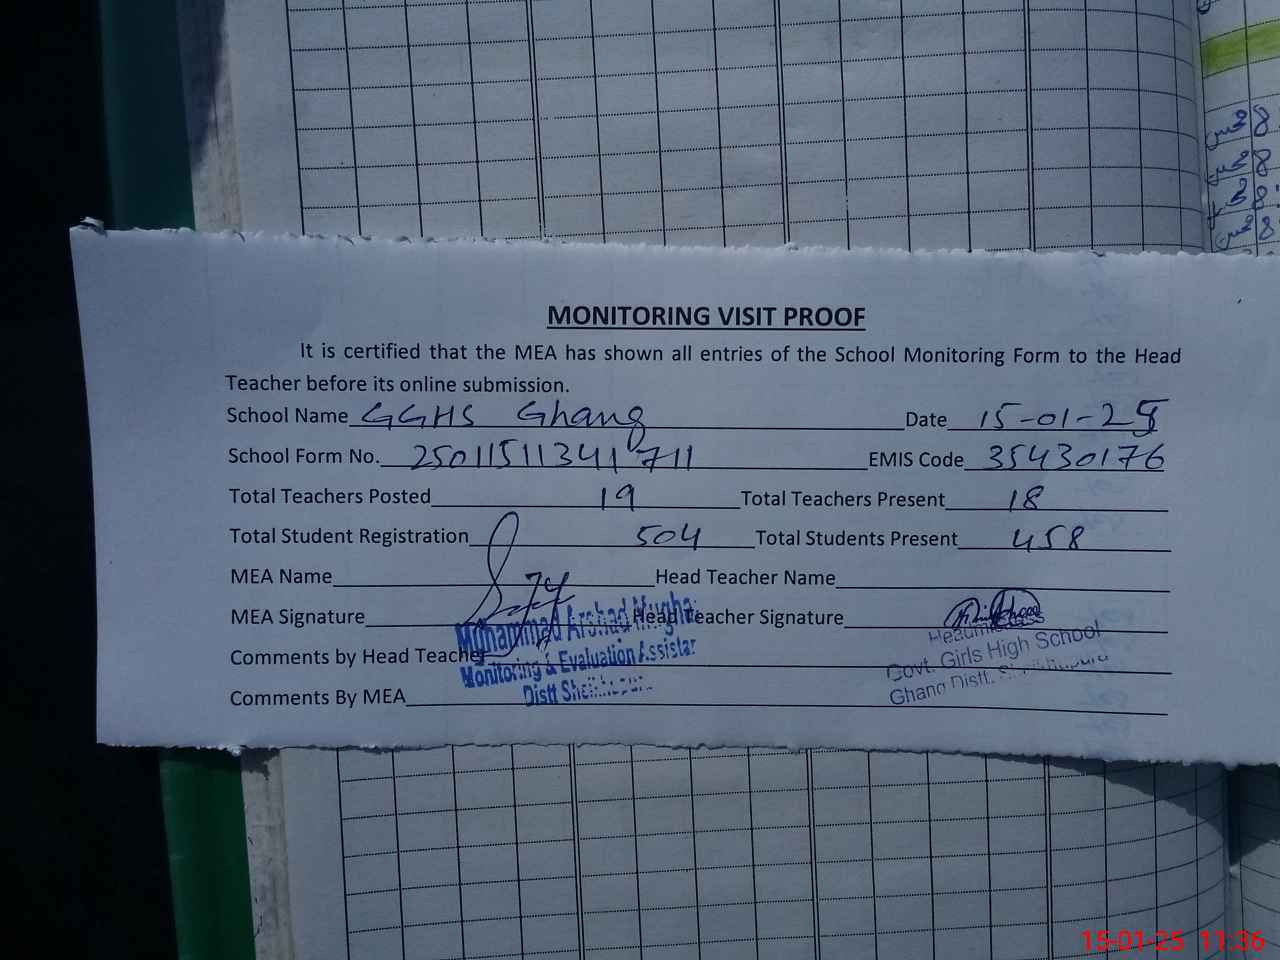 MONITORING VISIT PROOF
It is certified that the MEA has shown all entries of the School Monitoring Form to the Head
Teacher before its online submission.
School Name GGHS Ghang Date 15-01-25
School Form No. 25011511341711 EMIS Code 35430176
Total Teachers Posted 19 Total Teachers Present 18
Total Student Registration 504 Total Students Present 458
MEA Name Head Teacher Name
MEA Signature Head Teacher Signature
Comments by Head Teacher
Comments By MEA
Muhammad Arshad Mughal
Monitoring & Evaluation Assistan
Distt Sheikhupura
Headmistress
Govt. Girls High School
Ghang Distt. Sheikhupura
15-01-25 11:36